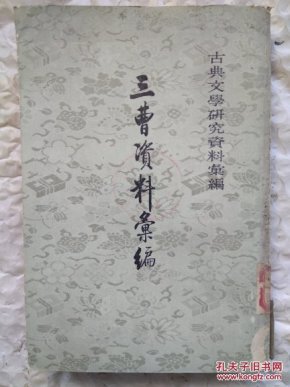 古典文學研究資料彙編
三曹資料彙編
孔夫子旧书网